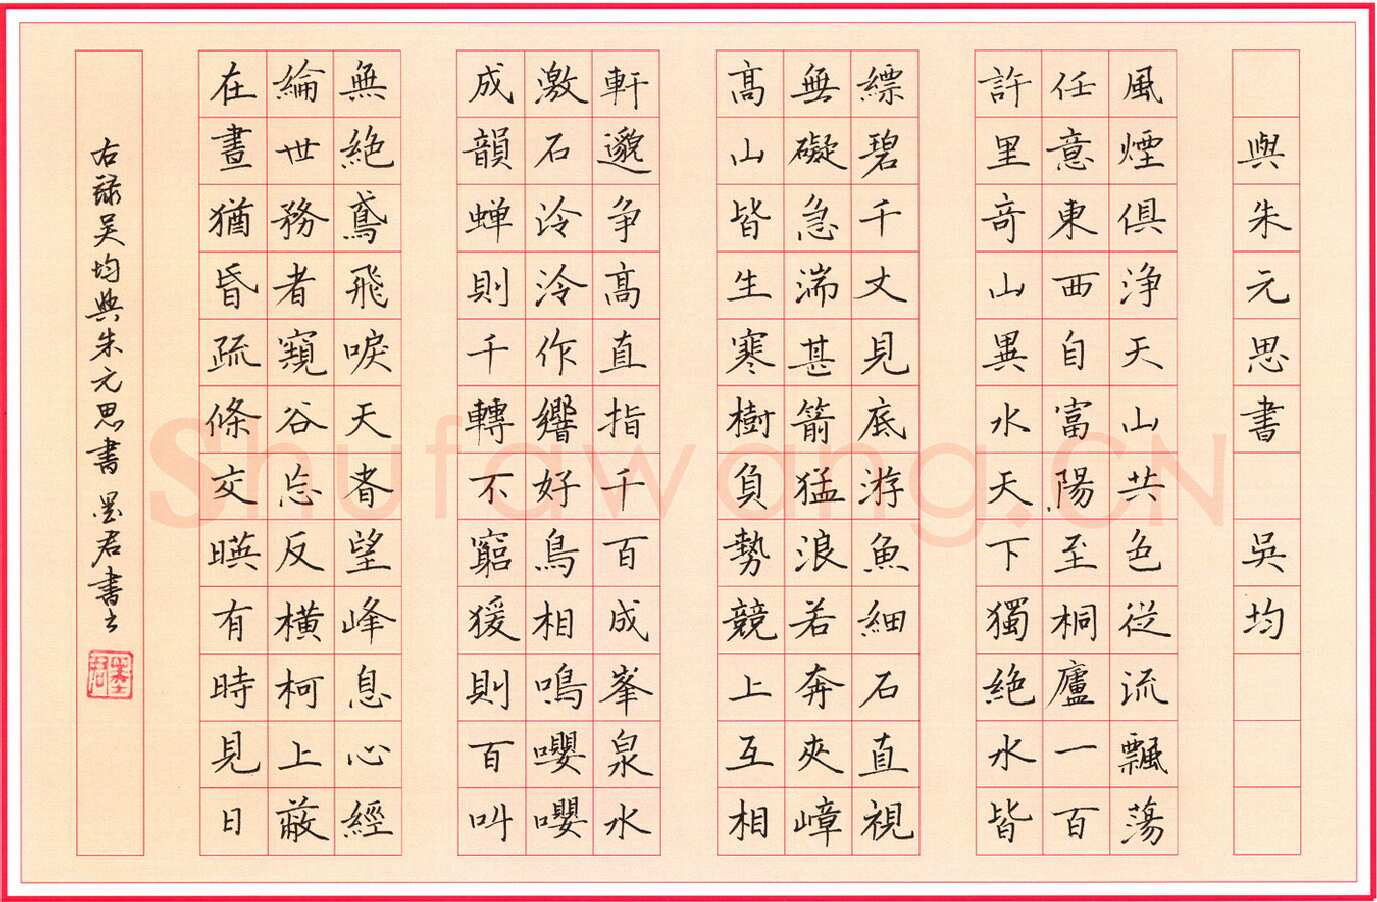 與朱元思書 吳均
風煙俱浄天山共色從流飄蕩
任意東西自富陽至桐廬一百
許里奇山異水天下獨絕水皆
縹碧千丈見底游魚細石直視
無礙急湍甚箭猛浪若奔夾嶂
高山皆生寒樹負勢競上互相
軒邈争高直指千百成峯泉水
激石泠泠作響好鳥相鳴嚶嚶
成韻蝉則千轉不窮猨則百叫
無絕鳶飛唳天者望峰息心經
綸世務者窺谷忘反橫柯上蔽
在晝猶昏疏條交暎有時見日
右録吴均與朱元思書 墨君書
墨君
Shufawang.CN